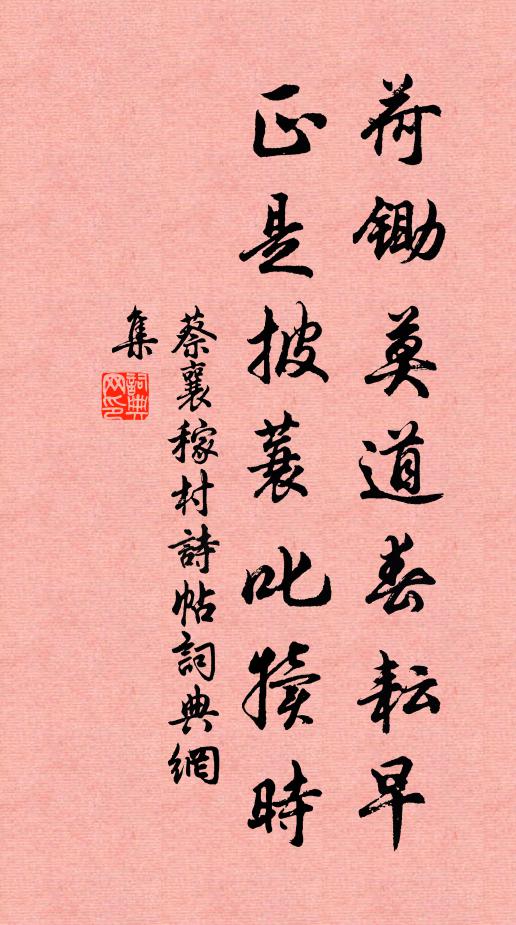 荷鋤莫道春耘早
正是披蓑叱犢時
蔡襄稼村詩帖詞典網
集
詞典
网印